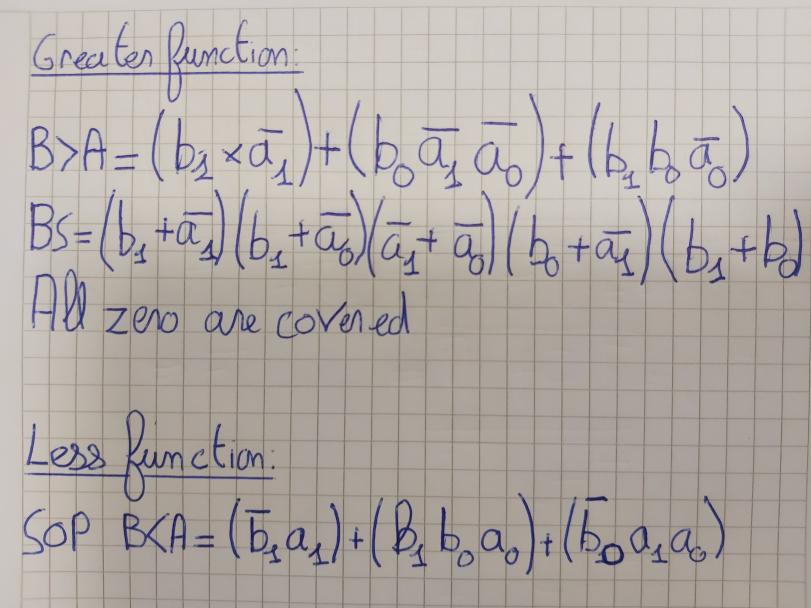 Greater function:
B>A = (b₁ × a̅₁) + (b₀ a̅₁ a̅₀) + (b₁ b₀ a̅₀)
BS = (b₁ + a̅₁)(b₁ + a̅₀)(a̅₁ + a̅₀)(b₀ + a̅₁)(b₁ + b₀)
All zero are covered
Less function:
SOP B<A = (b̅₁ a₁) + (B₁ b₀ a₀) + (b̅₀ a₁ a₀)